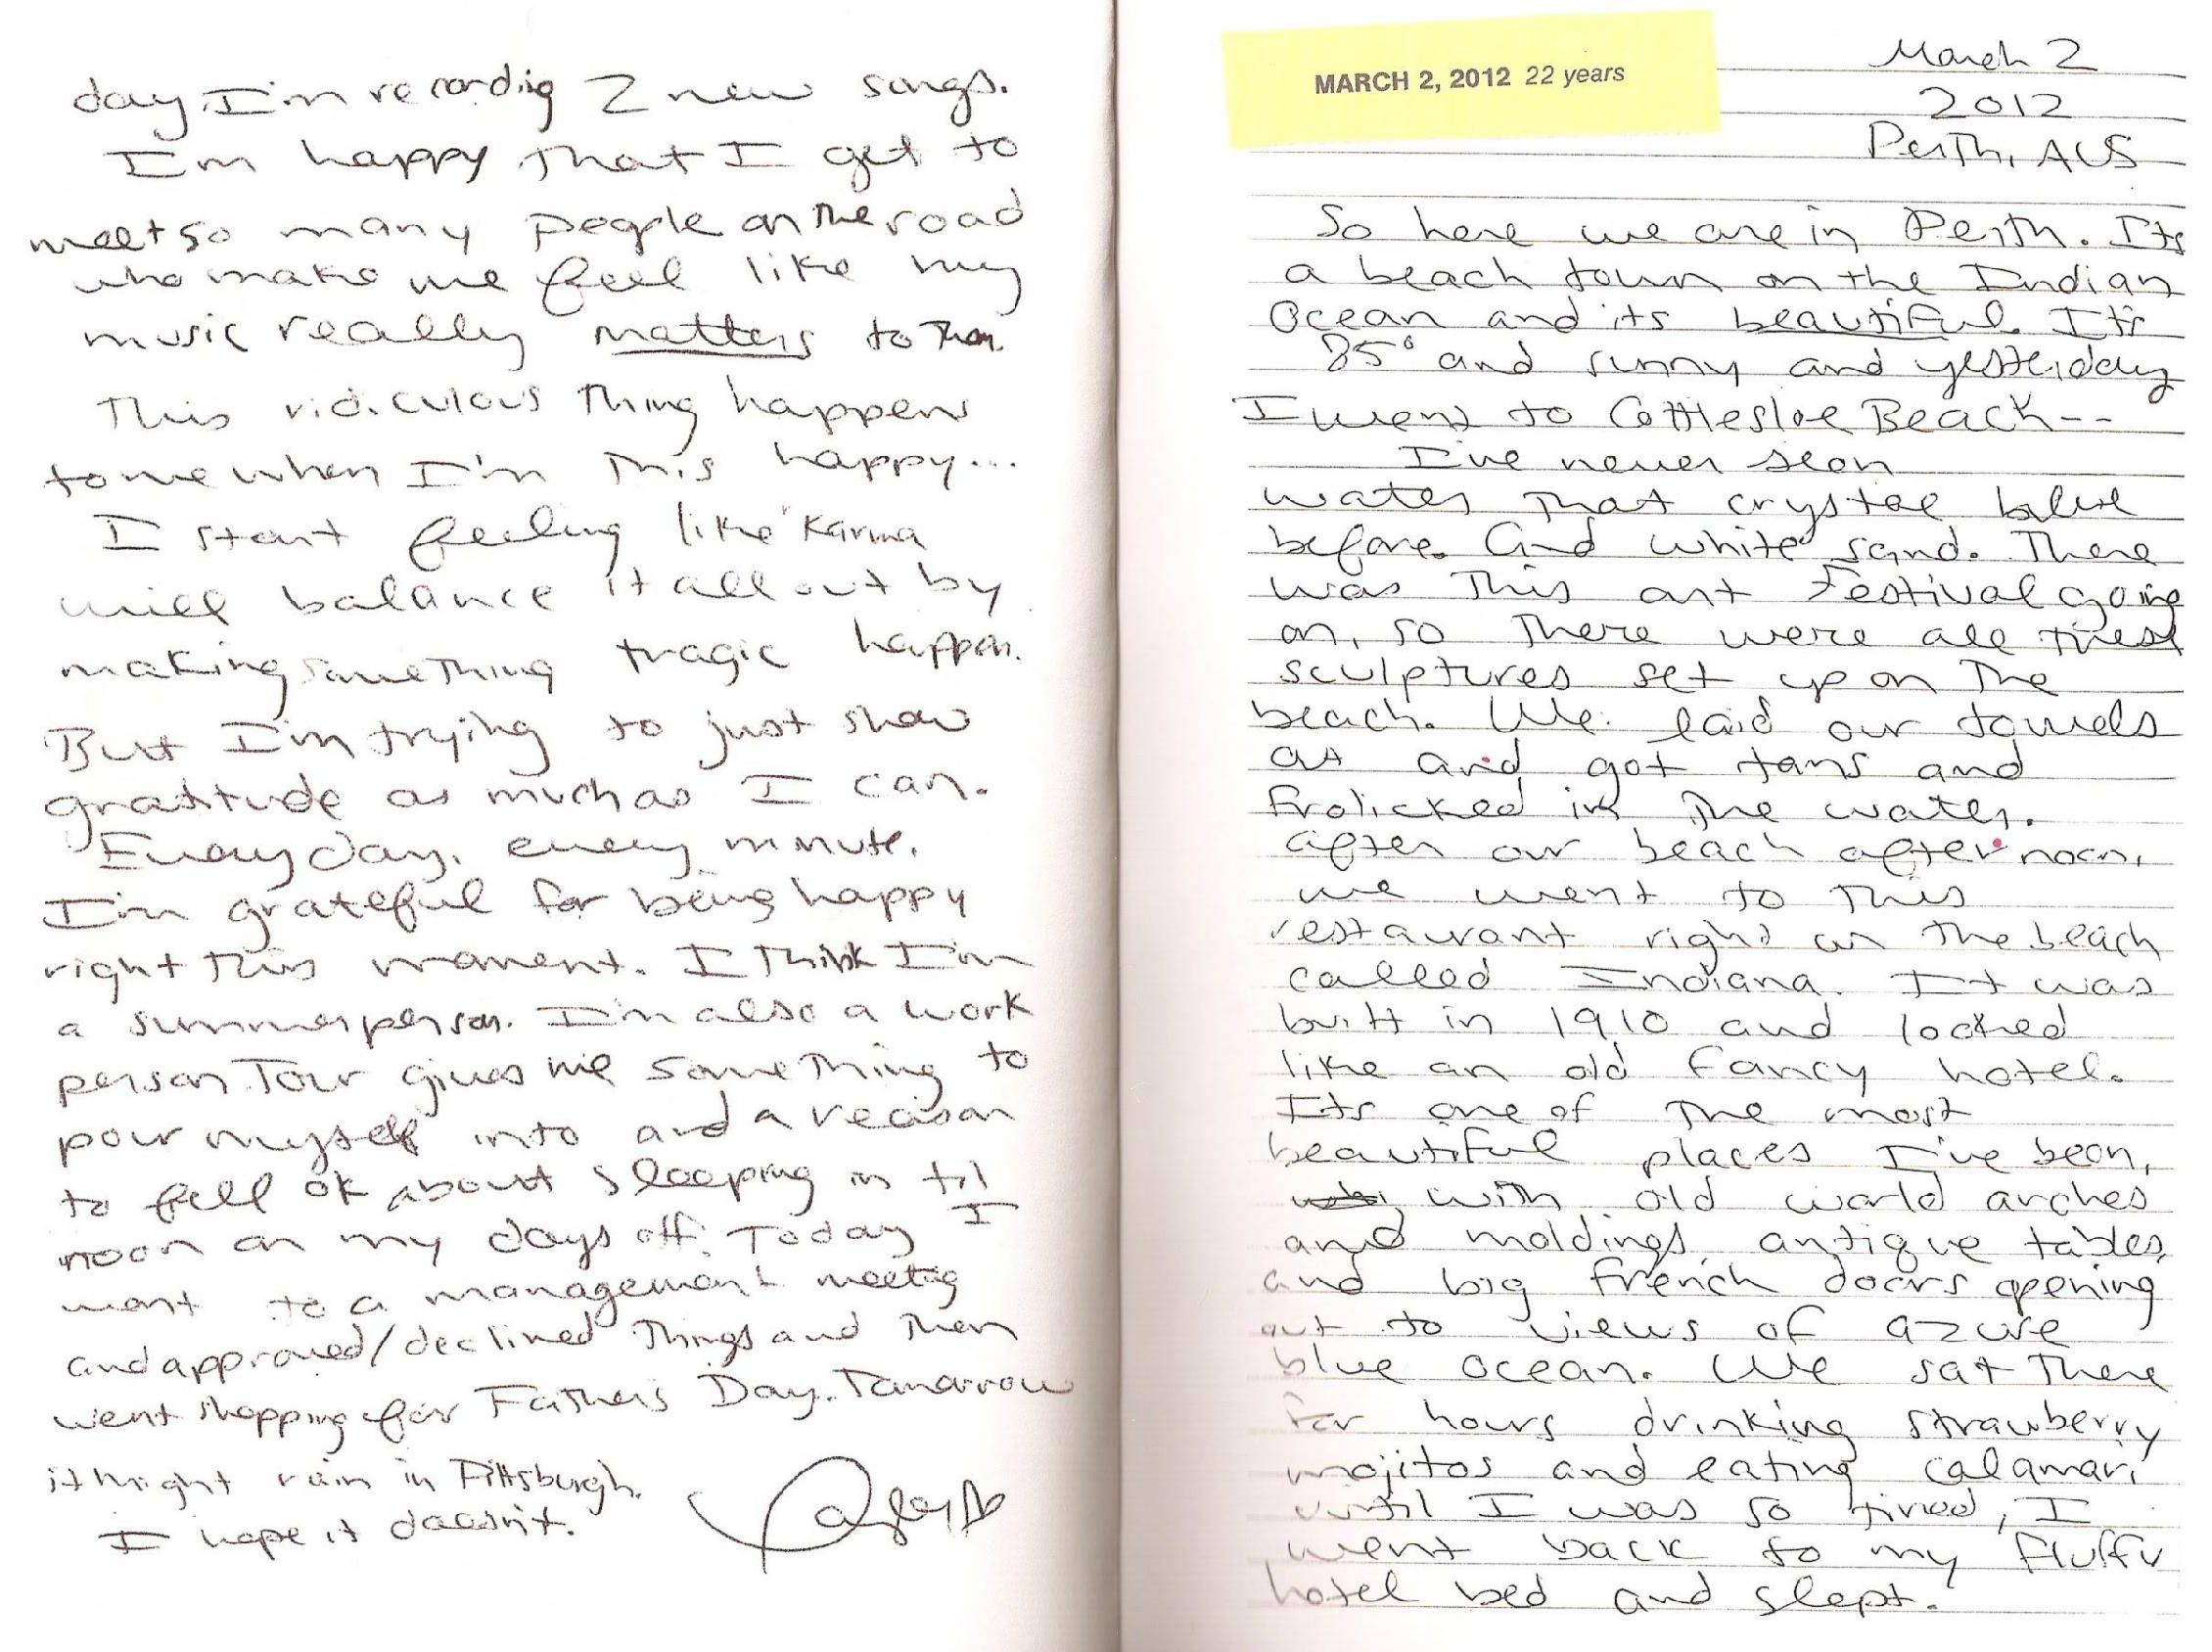 day, I'm recording 2 new songs.
I'm happy that I get to
meet so many people on the road
who make me feel like my
music really matters to them.
This ridiculous thing happens
to me when I'm this happy...
I start feeling like karma
will balance it all out by
making something tragic happen.
But I'm trying to just show
gratitude as much as I can.
Every day, every minute.
I'm grateful for being happy
right this moment. I think I'm
a summer person. I'm also a work
person. Tour gives me something to
pour myself into and a reason
to fell ok about sleeping in til
noon on my days off. Today I
went to a management meeting
and approved/declined things and then
went shopping for Father's Day. Tomorrow
it might rain in Pittsburgh.
I hope it doesn't.
MARCH 2, 2012 22 years
March 2
2012
Perth, AUS
So here we are in Perth. Its
a beach town on the Indian
Ocean and its beautiful. It's
85° and sunny and yesterday
I went to Cottlesloe Beach--
I've never seen
water that crystal blue
before. And white sand. There
was this art festival going
on, so there were all these
sculptures set up on the
beach. We laid our towels
out and got tans and
frolicked in the water.
After our beach afternoon,
we went to this
restaurant right on the beach
called Indiana. It was
built in 1910 and looked
like an old fancy hotel.
Its one of the most
beautiful places I've been,
with old world arches
and moldings, antique tables,
and big french doors opening
out to views of azure
blue ocean. We sat there
for hours drinking strawberry
mojitos and eating calamari
until I was so tired, I
went back to my fluffy
hotel bed and slept.